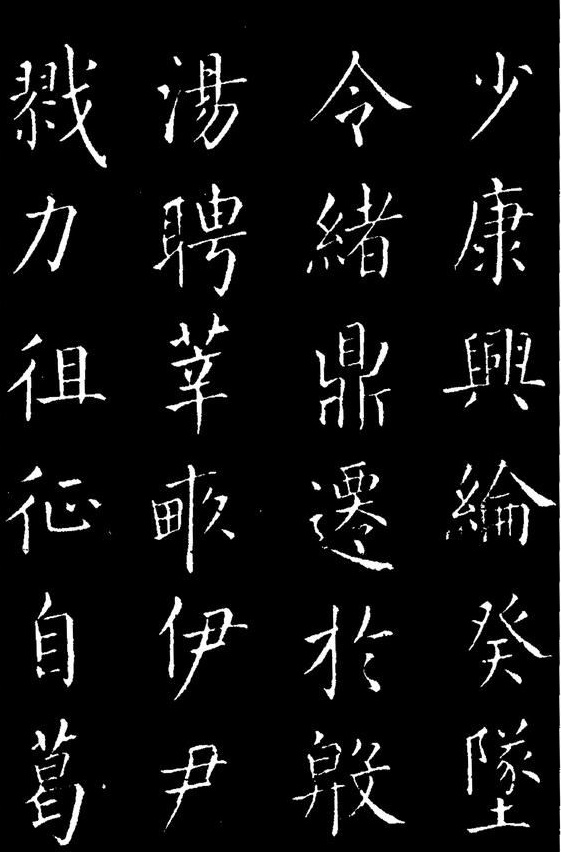 少康興綸癸墜
令緒鼎遷於殷
湯聘莘畮伊尹
戮力徂征自葛